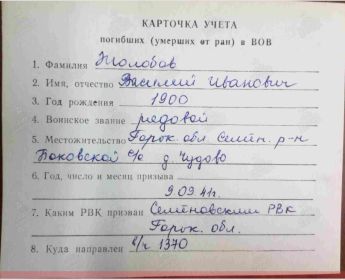 КАРТОЧКА УЧЕТА
погибших (умерших от ран) в ВОВ
1. Фамилия Жолобов
2. Имя, отчество Василий Иванович
3. Год рождения 1900
4. Воинское звание рядовой
5. Местожительство Горьк. обл Семён. р-н
Боковской с/с д. Чудово
6. Год, число и месяц призыва
9.03.41г.
7. Каким РВК призван Семёновским РВК
Горьк. обл.
8. Куда направлен в/ч 1370